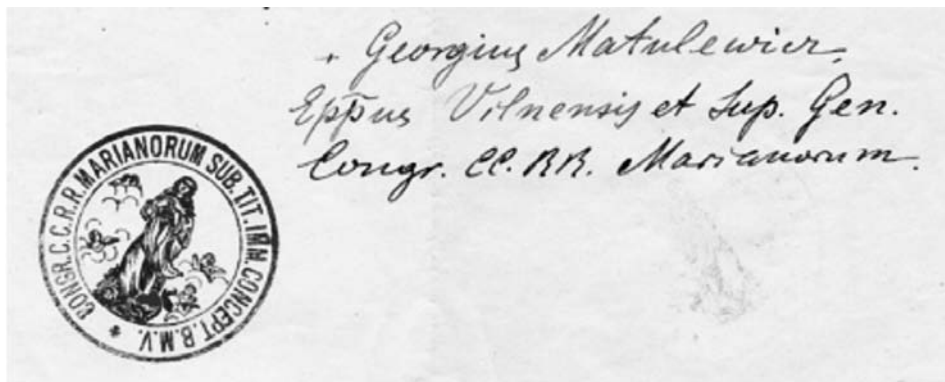 + Georgius Matulewicz,
Epp̄us Vilnensis et Sup. Gen.
Congr. CC. RR. Marianorum.
CONGR. C.C.R.R. MARIANORUM SUB. TIT. IMM. CONCEPT. B.M.V.